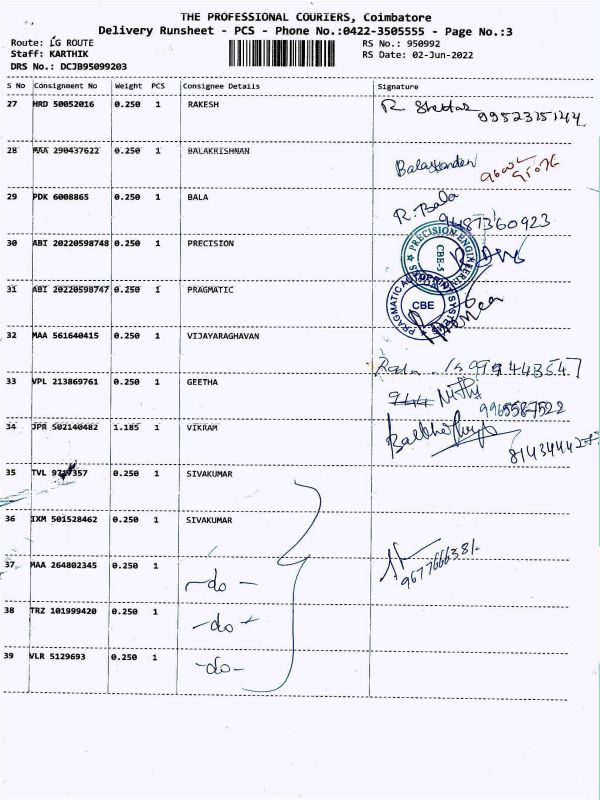 THE PROFESSIONAL COURIERS, Coimbatore
Delivery Runsheet - PCS - Phone No.:0422-3505555 - Page No.:3
Route: LG ROUTE
RS No.: 950992
Staff: KARTHIK
RS Date: 02-Jun-2022
DRS No.: DCJB95099203
S No Consignment No Weight PCS Consignee Details Signature
27 HRD 50052016 0.250 1 RAKESH
28 MAA 290437622 0.250 1 BALAKRISHNAN
29 PDK 6008865 0.250 1 BALA R. Bala
9487360923
30 ABI 20220598748 0.250 1 PRECISION PRECISION ENGINEERING CBE-5
31 ABI 20220598747 0.250 1 PRAGMATIC PRAGMATIC SYSTEMS CBE
32 MAA 561640415 0.250 1 VIJAYARAGHAVAN
33 VPL 213869761 0.250 1 GEETHA
9965587522
34 JPR 502140482 1.185 1 VIKRAM
35 TVL 357 0.250 1 SIVAKUMAR
36 IXM 501528462 0.250 1 SIVAKUMAR
37 MAA 264802345 0.250 1 -do-
38 TRZ 101999420 0.250 1 -do-
39 VLR 5129693 0.250 1 -do-